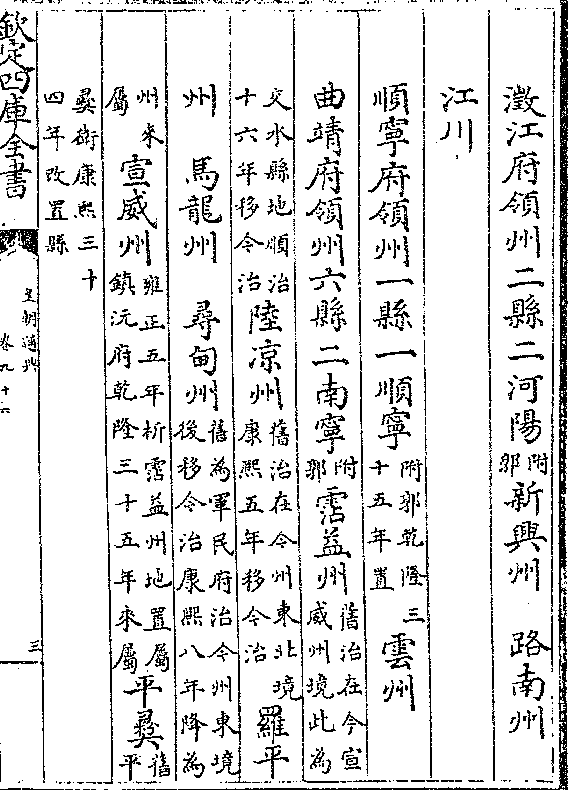 澂江府領州二縣二河陽附郭新興州　路南州
江川
順寧府領州一縣一順寧附郭乾隆三十五年置雲州
曲靖府領州六縣二南寧附郭霑益州舊治在今宣威州境此為
交水縣地順治十六年移今治陸凉州舊治在今州東北境康熙五年移今治羅平
州　馬龍州　尋甸州舊為軍民府治今州東境後移今治康熙八年降為
州來屬宣威州雍正五年析霑益州地置屬鎮沅府乾隆三十五年來屬平彝舊平
彝衛康熙三十四年改置縣
欽定四庫全書
皇朝通典
卷九十六
三